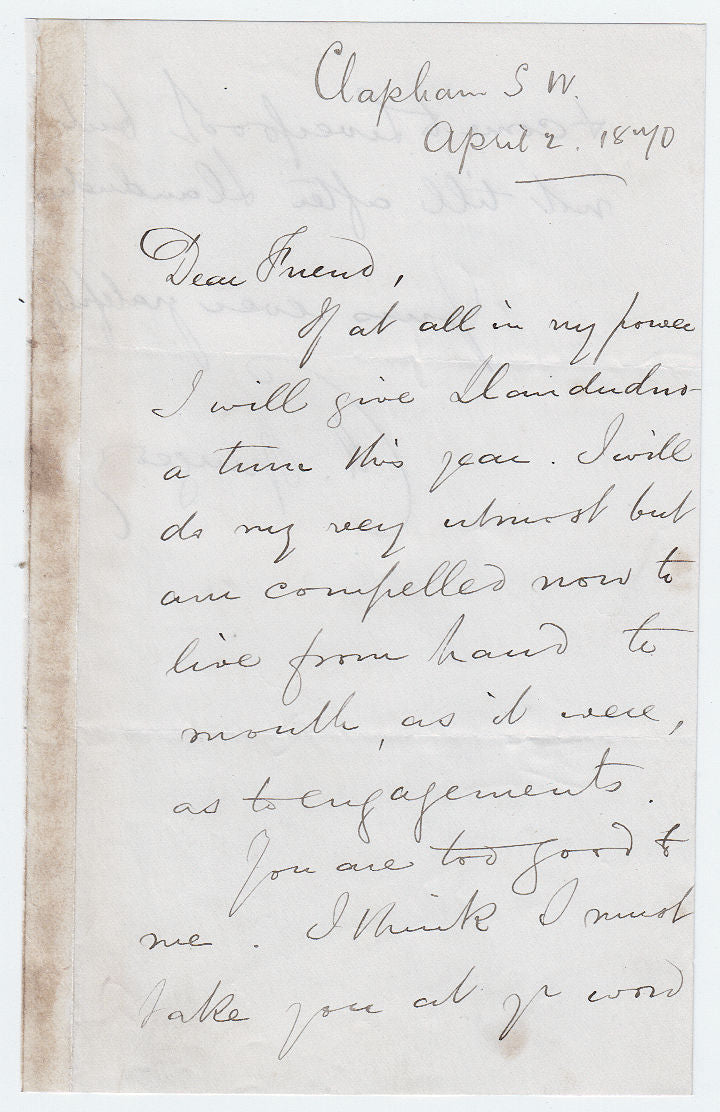 Clapham S W.
April 2. 1870
Dear Friend,
If at all in my power
I will give Llandudno
a turn this year. I will
do my very utmost but
am compelled now to
live from hand to
mouth, as it were,
as to engagements.
You are too good to
me. I think I must
take you at yr word